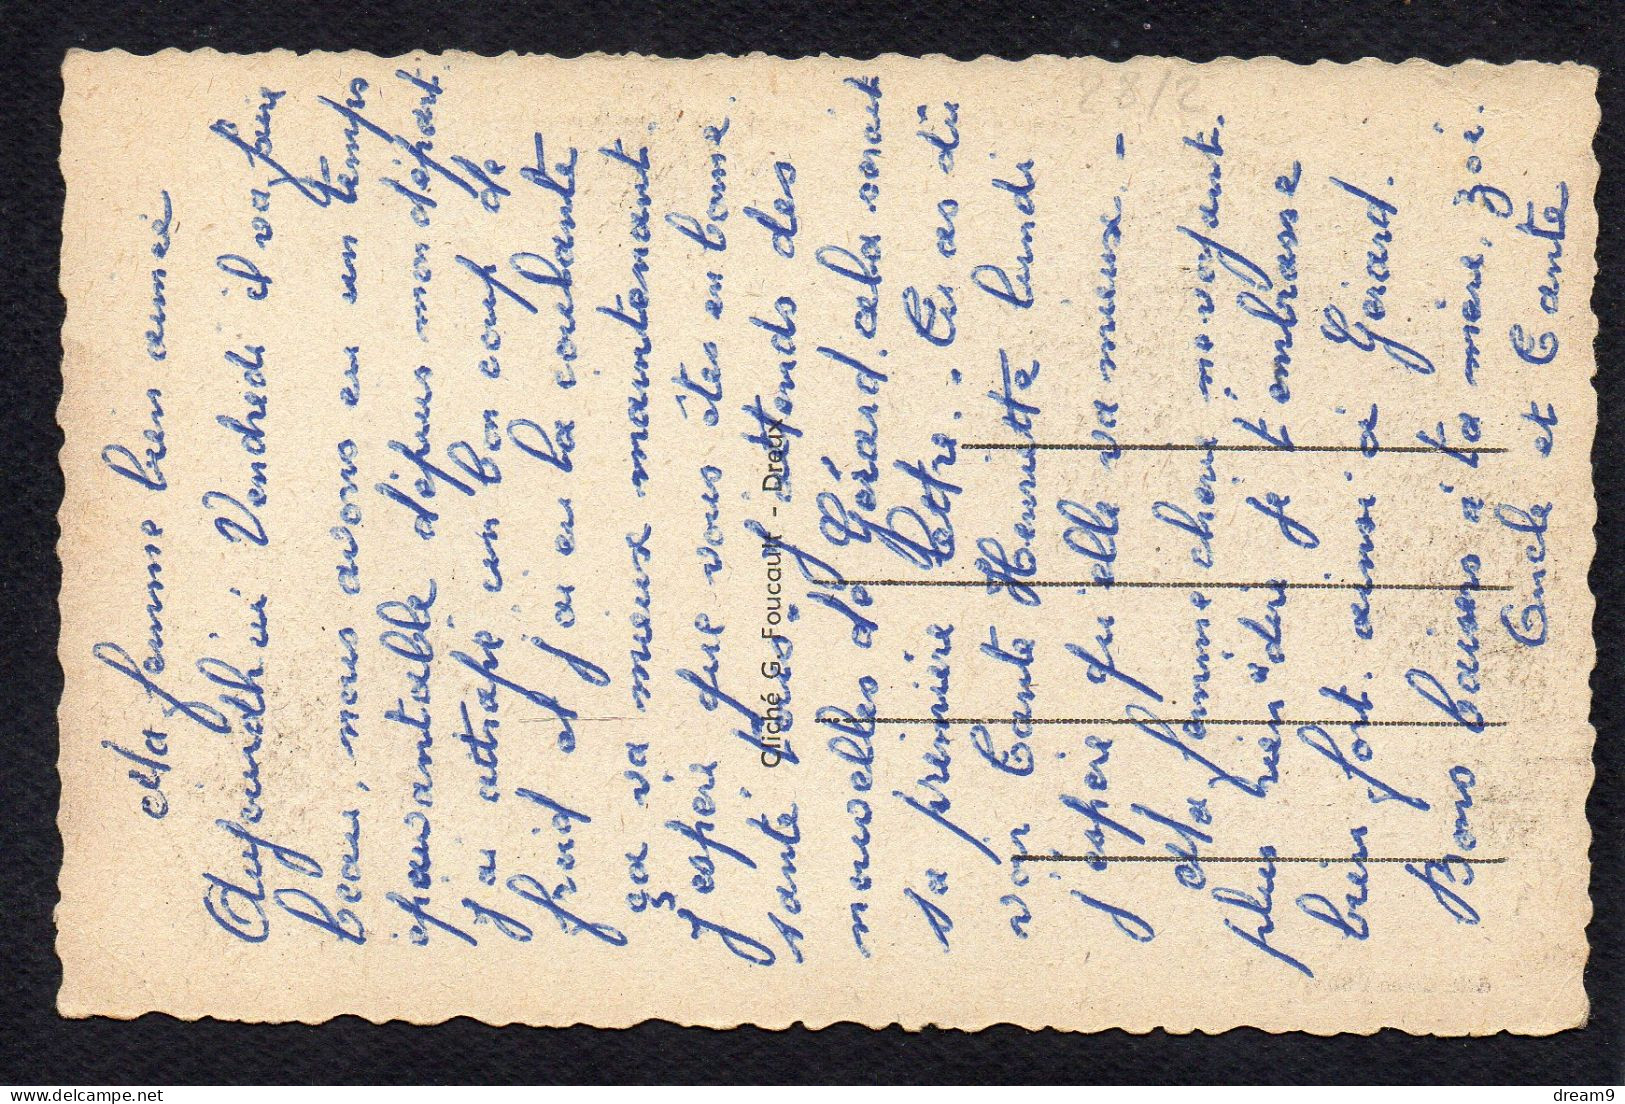 Ma femme bien aimée
Aujourd'hui Vendredi il va faire
beau, nous avons eu un temps
épouvantable dépuis mon départ
j'ai attrapé un bon coup de
froid et j'ai eu la courbante
ça va mieux maintenant.
J'espère que vous êtes en bonne
santé j'attends des
nouvelles de Gérard. cela serait
sa première lettre. - Tu as dû
voir Tante Henriette lundi
j'espère qu'elle va mieux. -
Ma femme chérie ne voyant
plus rien à dire je t'embrasse
bien fort. ainsi à Gérard.
Bons baisers à ta mère, Zoï.
Oncle et Tante
Cliché G. Foucault - Dreux
28/2
dream9